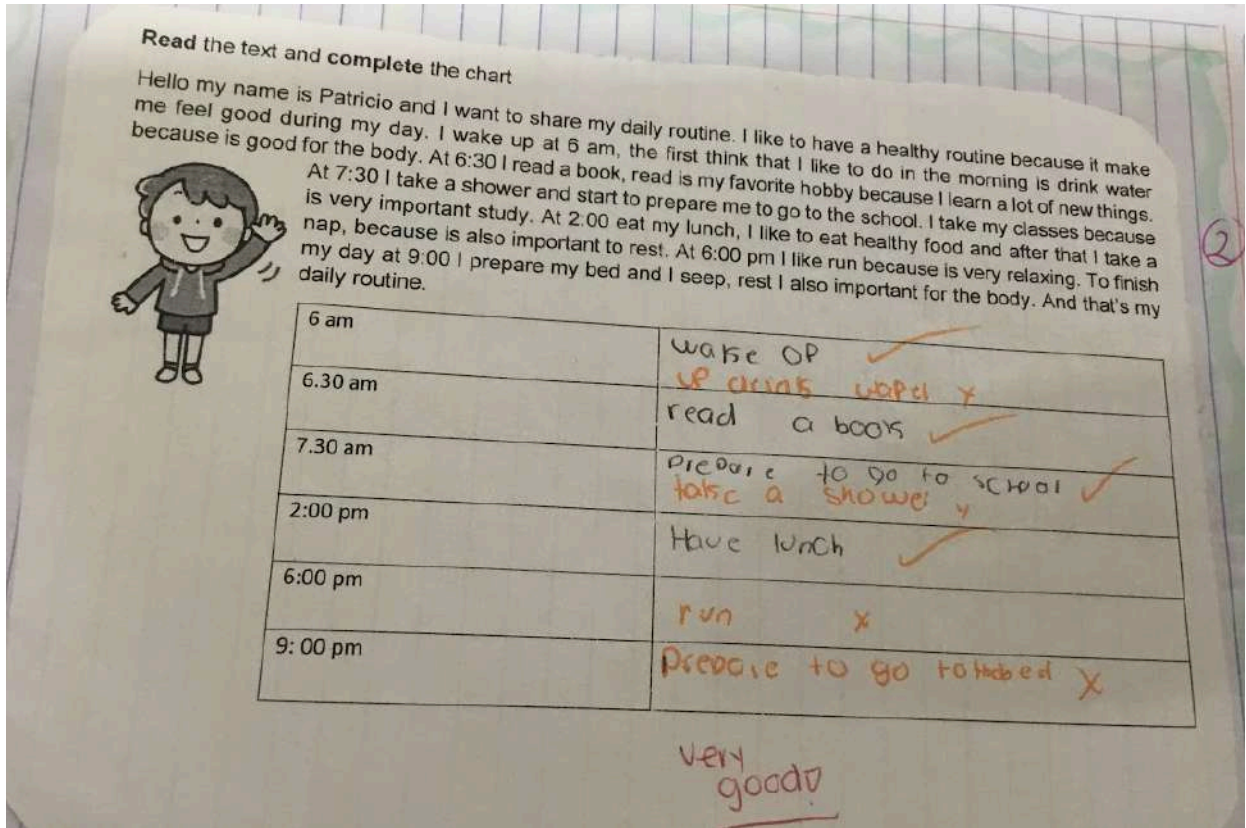 Read the text and complete the chart
Hello my name is Patricio and I want to share my daily routine. I like to have a healthy routine because it make
me feel good during my day. I wake up at 6 am, the first think that I like to do in the morning is drink water
because is good for the body. At 6:30 I read a book, read is my favorite hobby because I learn a lot of new things.
At 7:30 I take a shower and start to prepare me to go to the school. I take my classes because
is very important study. At 2:00 eat my lunch, I like to eat healthy food and after that I take a
nap, because is also important to rest. At 6:00 pm I like run because is very relaxing. To finish
my day at 9:00 I prepare my bed and I seep, rest I also important for the body. And that's my
daily routine.
2
6 am
wake OP
up drink
6.30 am
read a book
7.30 am
prepare to go to school
take a shower
2:00 pm
Have lunch
6:00 pm
run
9: 00 pm
Prepare to go to bed
very
good